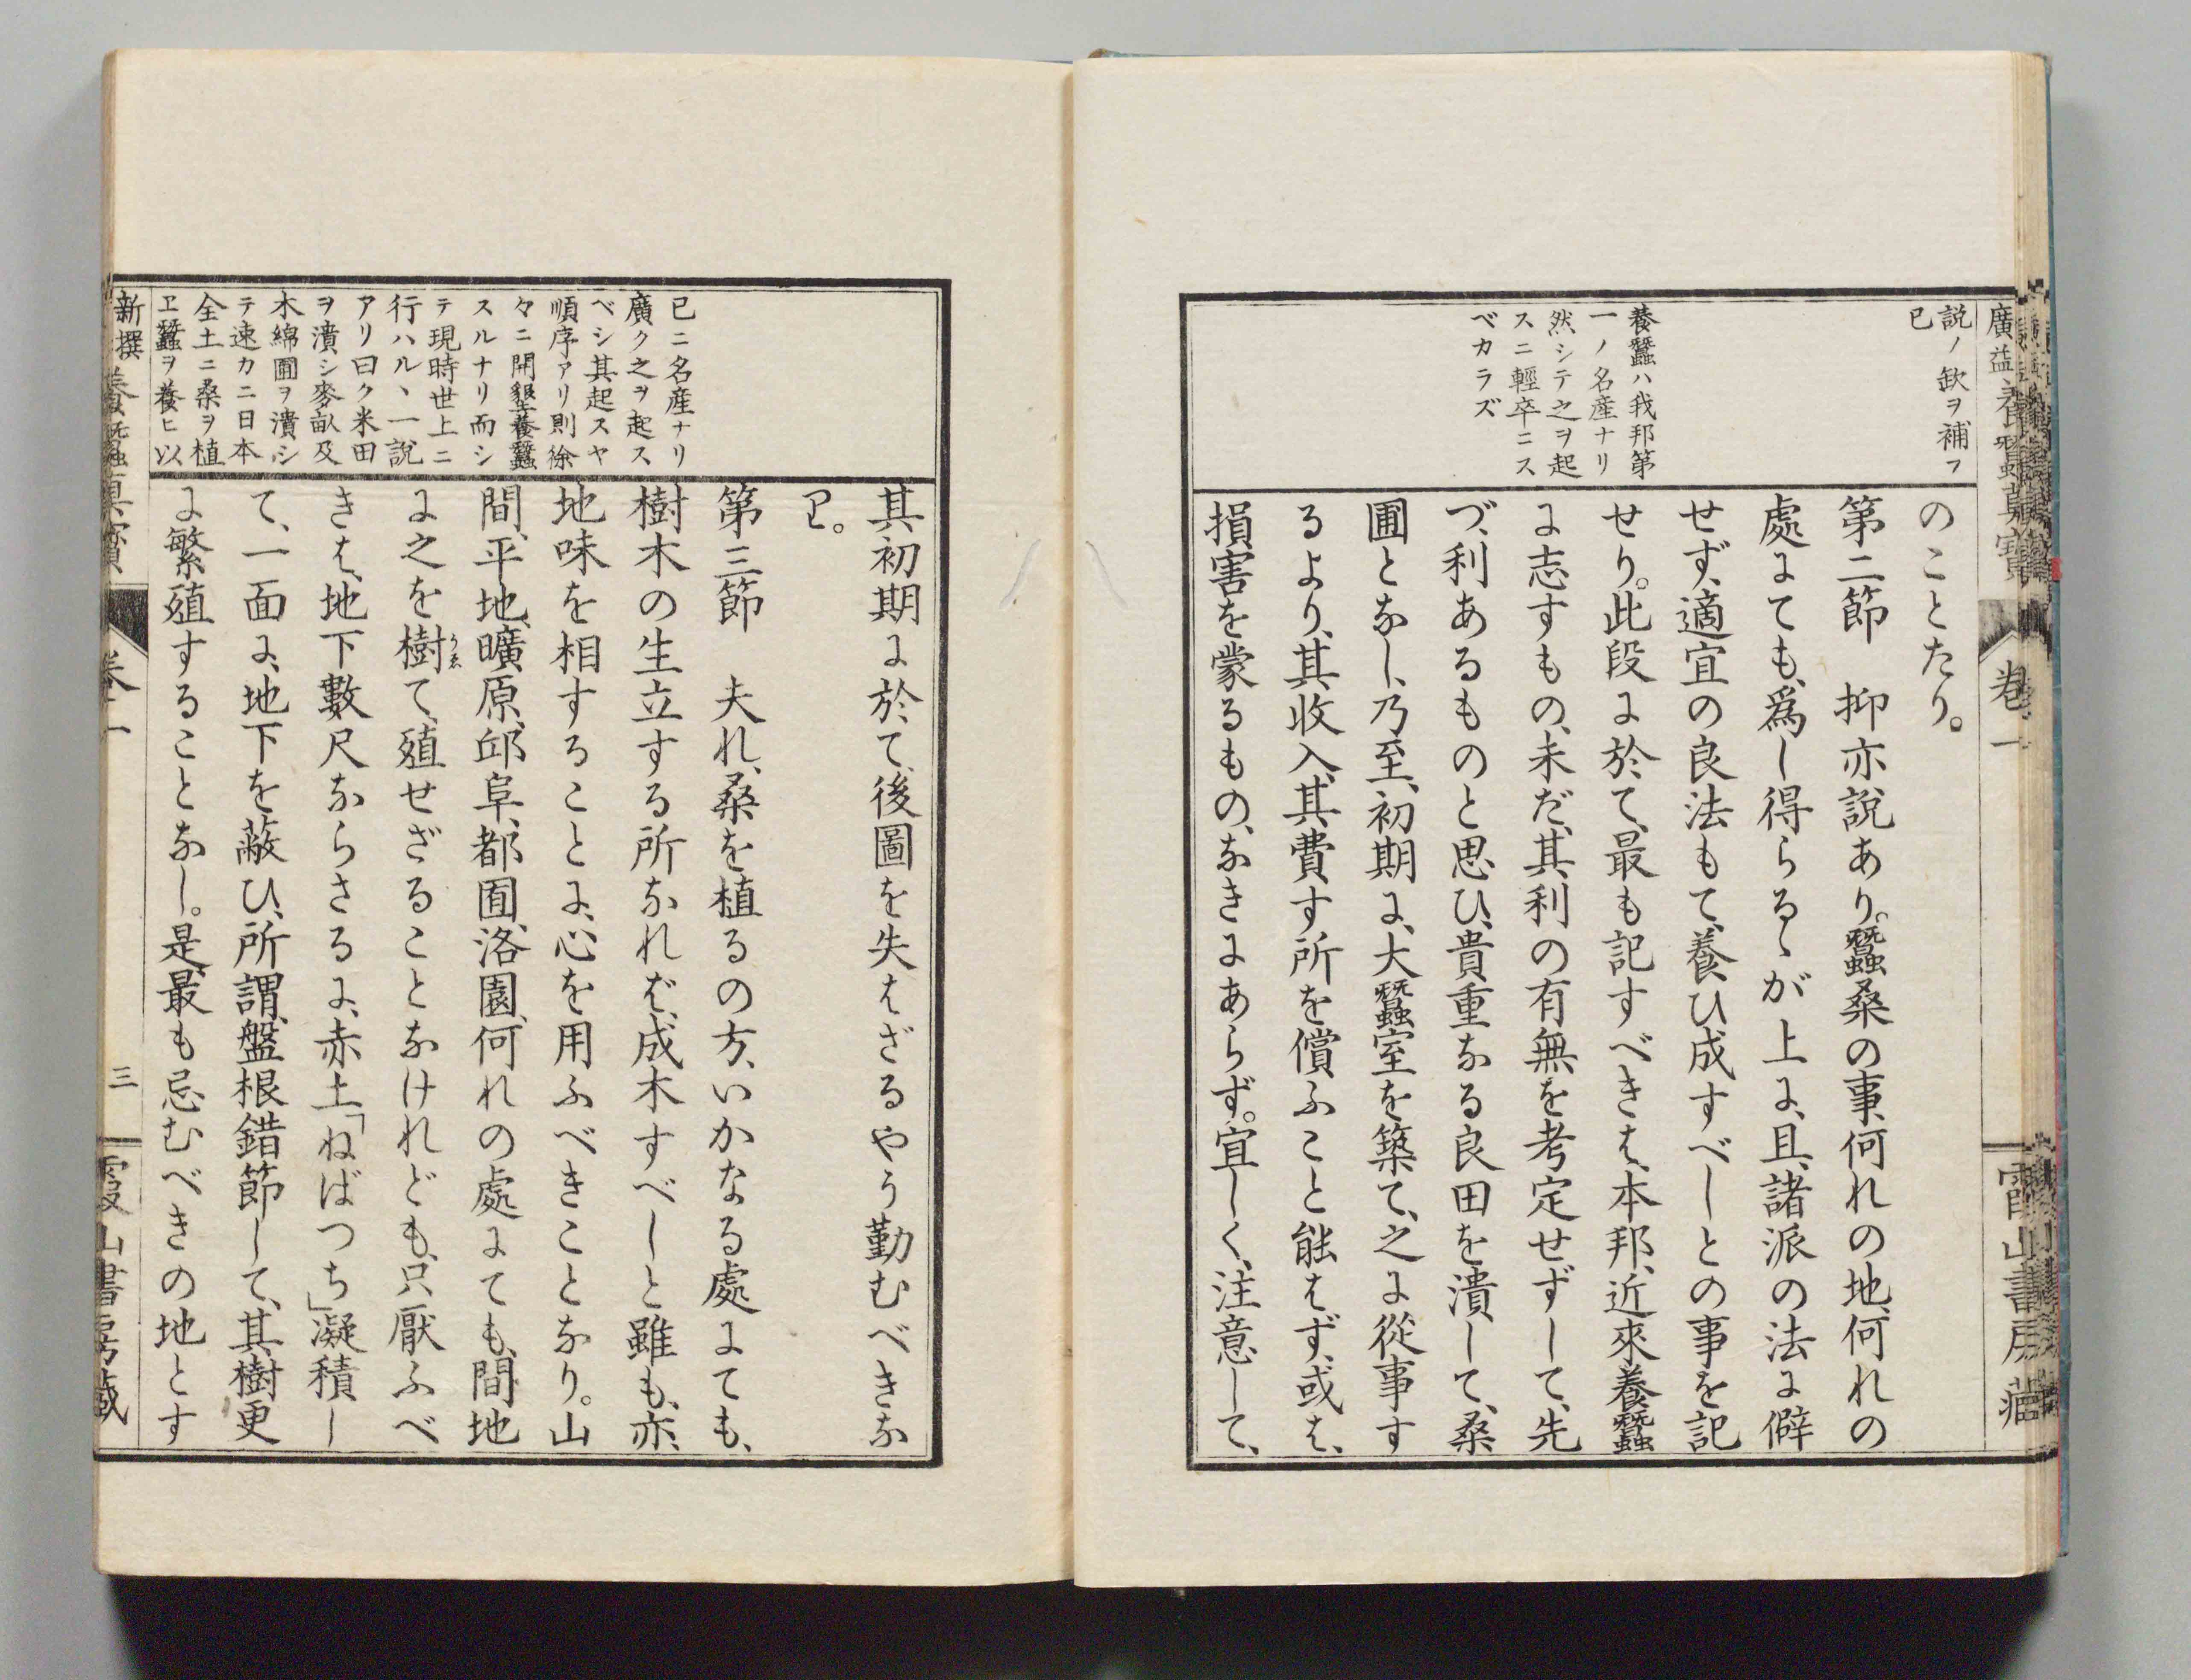 廣益養蠶眞寶 卷一 霞山書房藏
説ノ欽ヲ補フ
已
養蠶ハ我邦第
一ノ名産ナリ
然シテ之ヲ起
スニ輕卒ニス
ベカラズ
のことたり。
第二節 抑亦説あり。蠶桑の事、何れの地、何れの
處にても、爲し得らるゝが上に、且、諸派の法に僻
せず、適宜の良法もて、養ひ成すべしとの事を記
せり。此段に於て、最も記すべきは、本邦、近來養蠶
に志すもの、未だ、其利の有無を考定せずして、先
づ、利あるものと思ひ、貴重なる良田を潰して、桑
圃となし、乃至、初期に、大蠶室を築て、之に從事す
るより、其收入、其費す所を償ふこと能はず、或は、
損害を蒙るもの、なきにあらず。宜しく、注意して、
已ニ名産ナリ
廣ク之ヲ起ス
ベシ其起スヤ
順序アリ則徐
々ニ開墾養蠶
スルナリ而シ
テ現時世上ニ
行ハルヽ一説
アリ曰ク米田
ヲ潰シ麥畝及
木綿圃ヲ潰シ
テ速カニ日本
全土ニ桑ヲ植
ヱ蠶ヲ養ヒ以
其初期に於て、後圖を失はざるやう勤むべきな
り。
第三節 夫れ、桑を植るの方、いかなる處にても、
樹木の生立する所なれば、成木すべしと雖も、亦、
地味を相することに、心を用ふべきことなり。山
間、平地、曠原、邱阜、都圃、洛園、何れの處にても、間地
に之を樹て、殖せざることなけれども、只厭ふべ
うゑ
きは、地下數尺ならさるに、赤土「ねばつち」凝積し
て、一面に、地下を蔽ひ、所謂、盤根錯節して、其樹更
に繁殖することなし。是、最も忌むべきの地とす
新撰養蠶眞寶 卷一 三 霞山書房藏